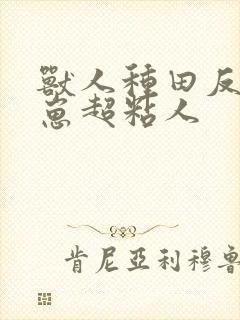 獸人種田反
崽超粘人
肯尼亞利穆魯